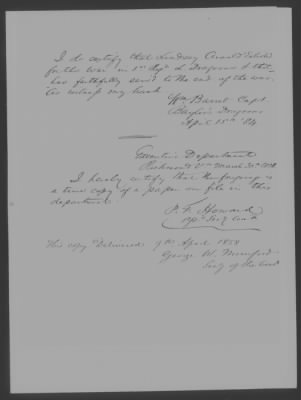 I do certify that Lindsay
for the war in 1st Regt L Dragoons & that
has faithfully served to the end of the war.
witness my hand
Wm Barret Capt.
Baylor's Dragoons
April 15th
Executive Department
Richmond March 30th
I hereby certify that the foregoing is
a true copy of a paper on file in this
department.
P. F. Howard
This copy Delivered 9th April 1858
George W. Munford
Secy of the